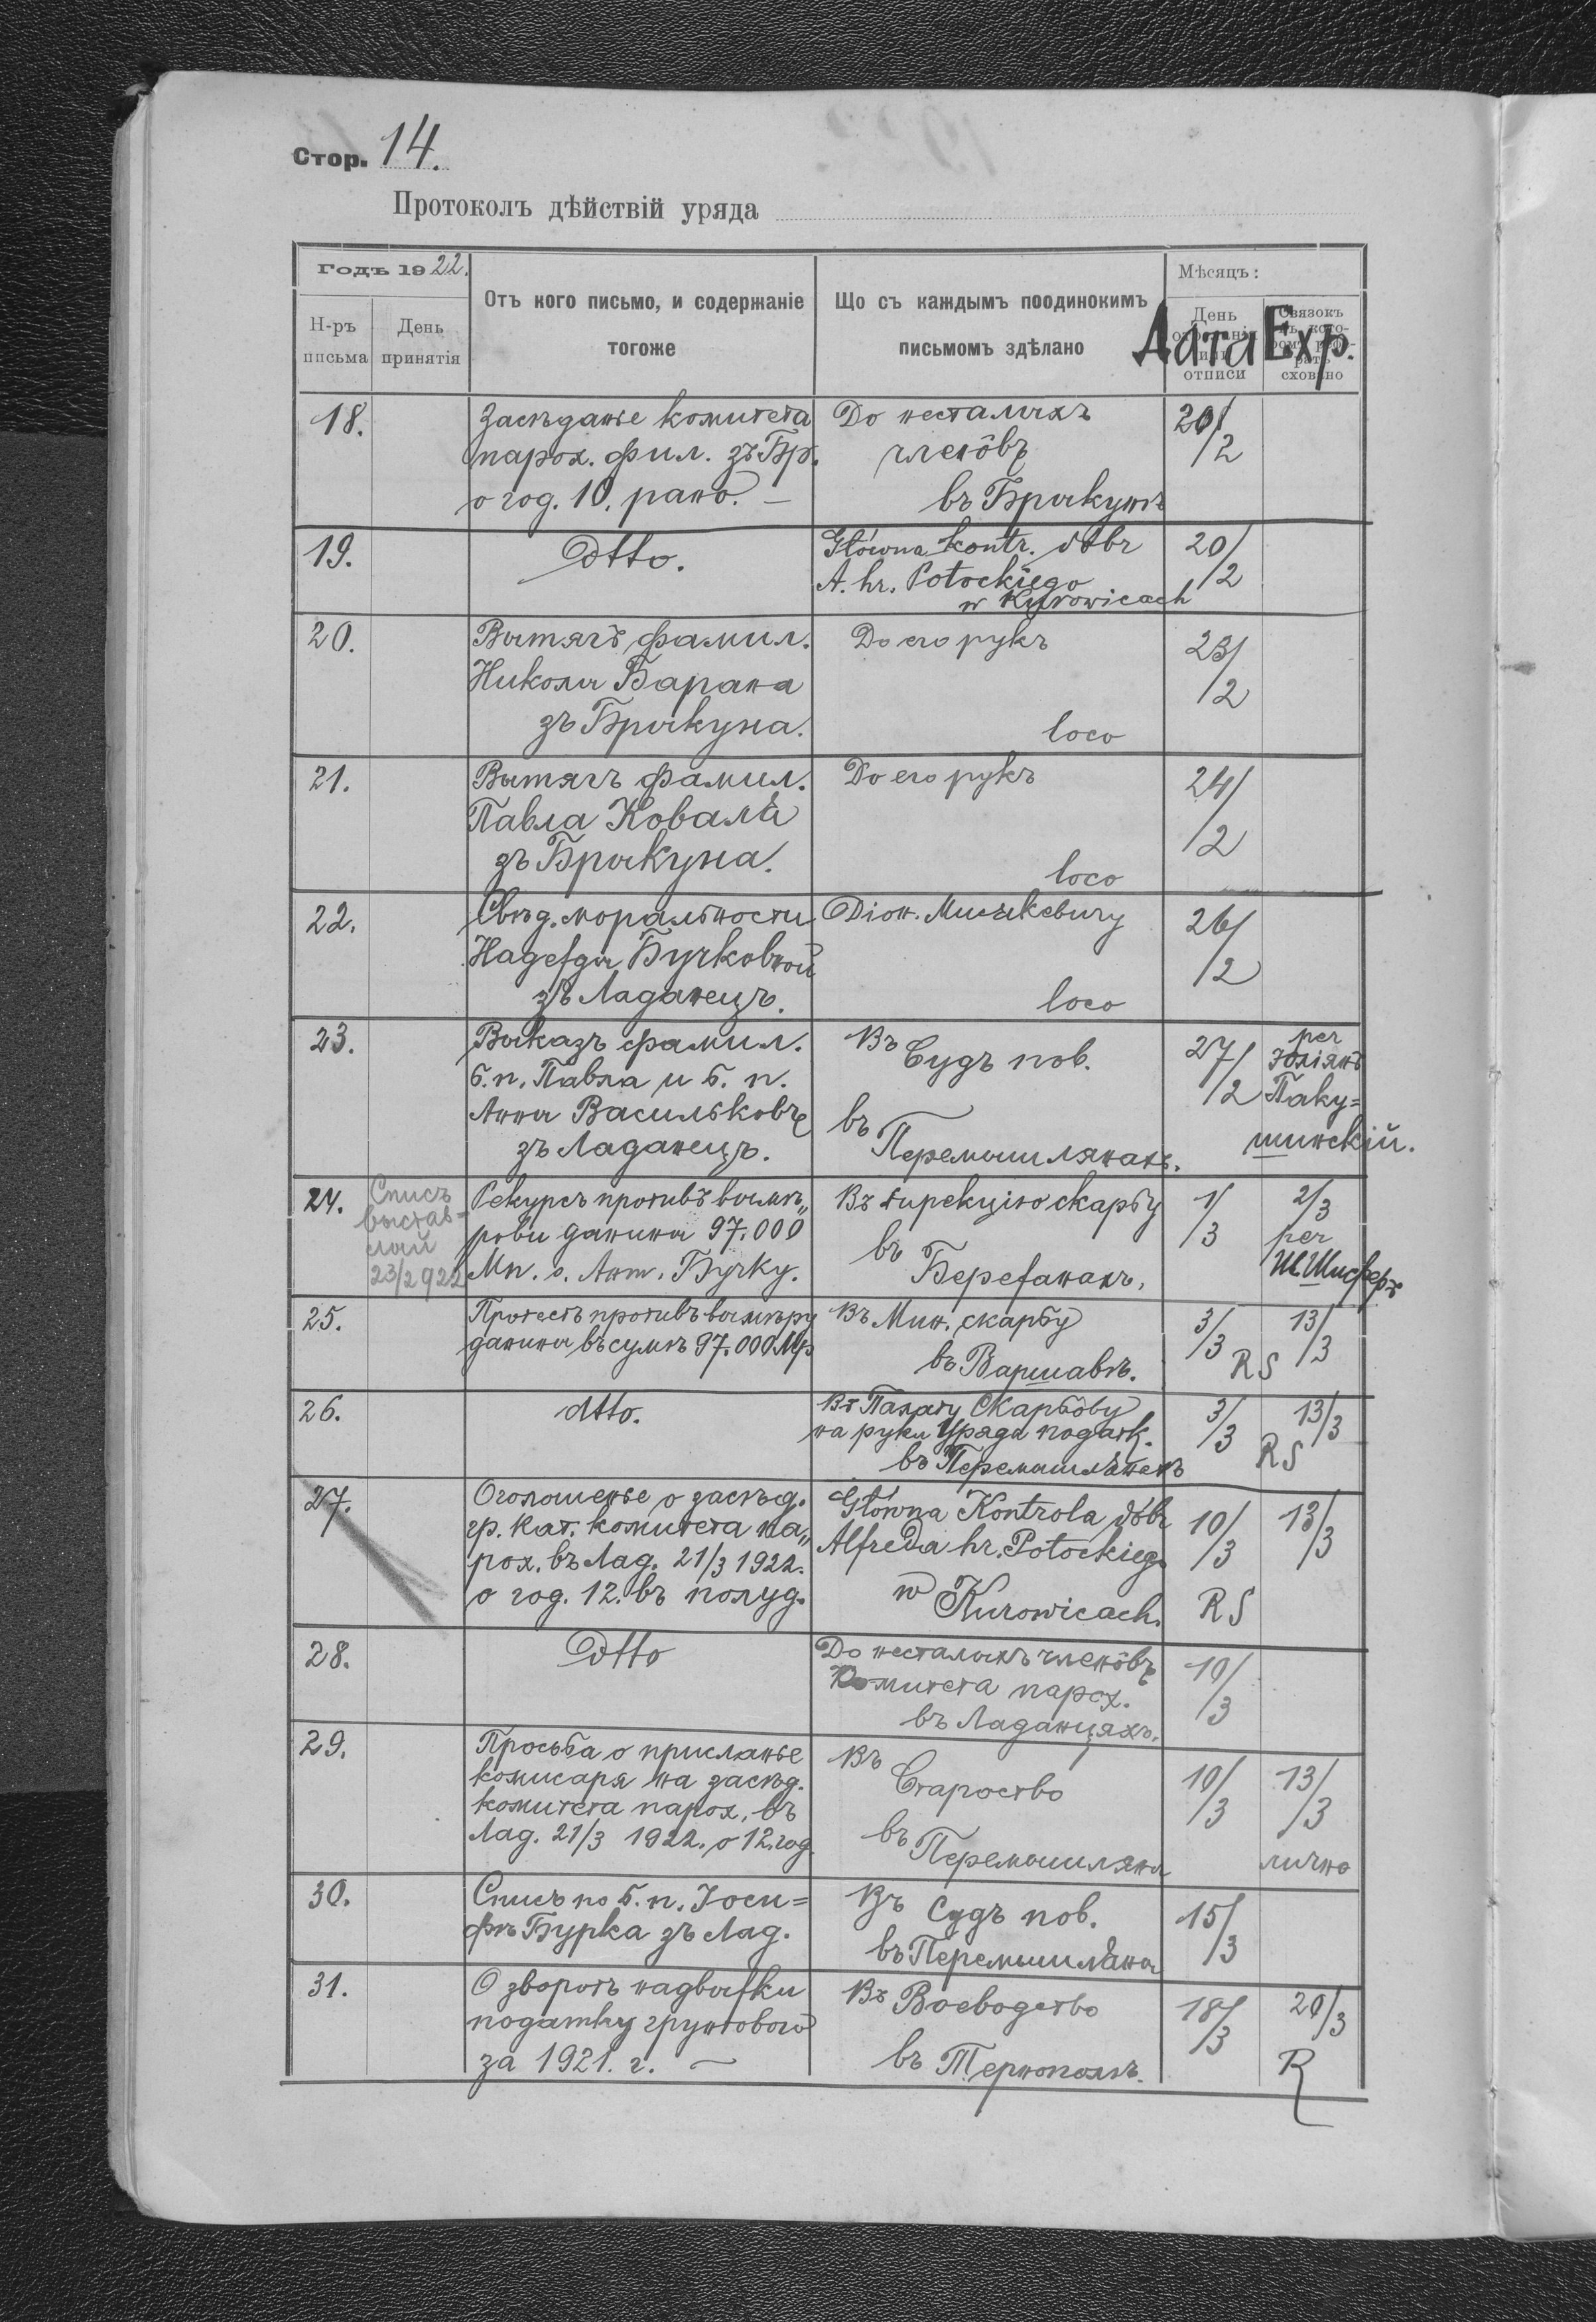 Стор. 14.
Протоколъ дѣйствій уряда
Годъ 1922.
Отъ кого письмо, и содержаніе
тогоже
Що съ каждымъ поодинокимъ
письмомъ здѣлано
Мѣсяцъ:
Н-ръ
письма
День
принятія
День
или
отписи
Связокъ
сховано
Дата Exp.
18.
Засѣданье комитета
парох. фил. зъ Бр.
о год. 10. рано. —
До несталыхъ
членôвъ
въ Брыкунѣ
20/2
19.
Dtto.
Główna kontr. dóbr
A. hr. Potockiego
w Kurowicach
20/2
20.
Вытягъ фамил.
Николы Барана
зъ Брыкуна.
До его рукъ
loco
23/2
21.
Вытягъ фамил.
Павла Коваля
зъ Брыкуна.
До его рукъ
loco
24/2
22.
Свѣд. моральности
Бучковной
зъ Ладанецъ.
Діон.
loco
26/2
23.
Выказъ фамил.
б. п. Павла и б. п.
Анны Васильковъ
зъ Ладанецъ.
Въ
Судъ пов.
въ
Перемышлянахъ.
27/2
per
Юліянъ
Паку=
шинскій.
24.
Списъ
выстав=
лый
23/2 922
Рекурсъ противъ вымѣ„
рови данины 97.000
Мп. о. Ант. Бучку.
Въ дирекцію скарбу
въ
Бережанахъ.
1/3
2/3
per
25.
Протестъ противъ вымѣру
данины въ сумѣ 97.000 Мр
Въ Мин. скарбу
въ Варшавѣ.
3/3
13/3
RS
26.
dtto.
Въ Палату Скарбôву
на руки Уряда податк.
3/3
13/3
RS
27.
Оголошенье о засѣд.
гр. кат. комитета па„
рох. въ Лад. 21/3 1922.
о год. 12. въ полуд.
Główna Kontrola dóbr
Alfreda hr. Potockiego
w Kurowicach.
10/3
13/3
RS
28.
Dtto
До несталыхъ членôвъ
Комитета парох.
въ Ладанцяхъ.
10/3
29.
Просьба о присланье
комисаря на засѣд.
комитета парох. въ
Лад. 21/3 1922. о 12. год.
Въ
Староство
въ
Перемышляны
10/3
13/3
лично
30.
Списъ по б. п. Іоси=
фѣ Бурка зъ Лад.
Въ Судъ пов.
въ Перемышляны
15/3
31.
О зворотъ надвыжки
податку грунтового
за 1921. г. —
Въ Воеводство
въ Тернополѣ.
18/3
20/3
R